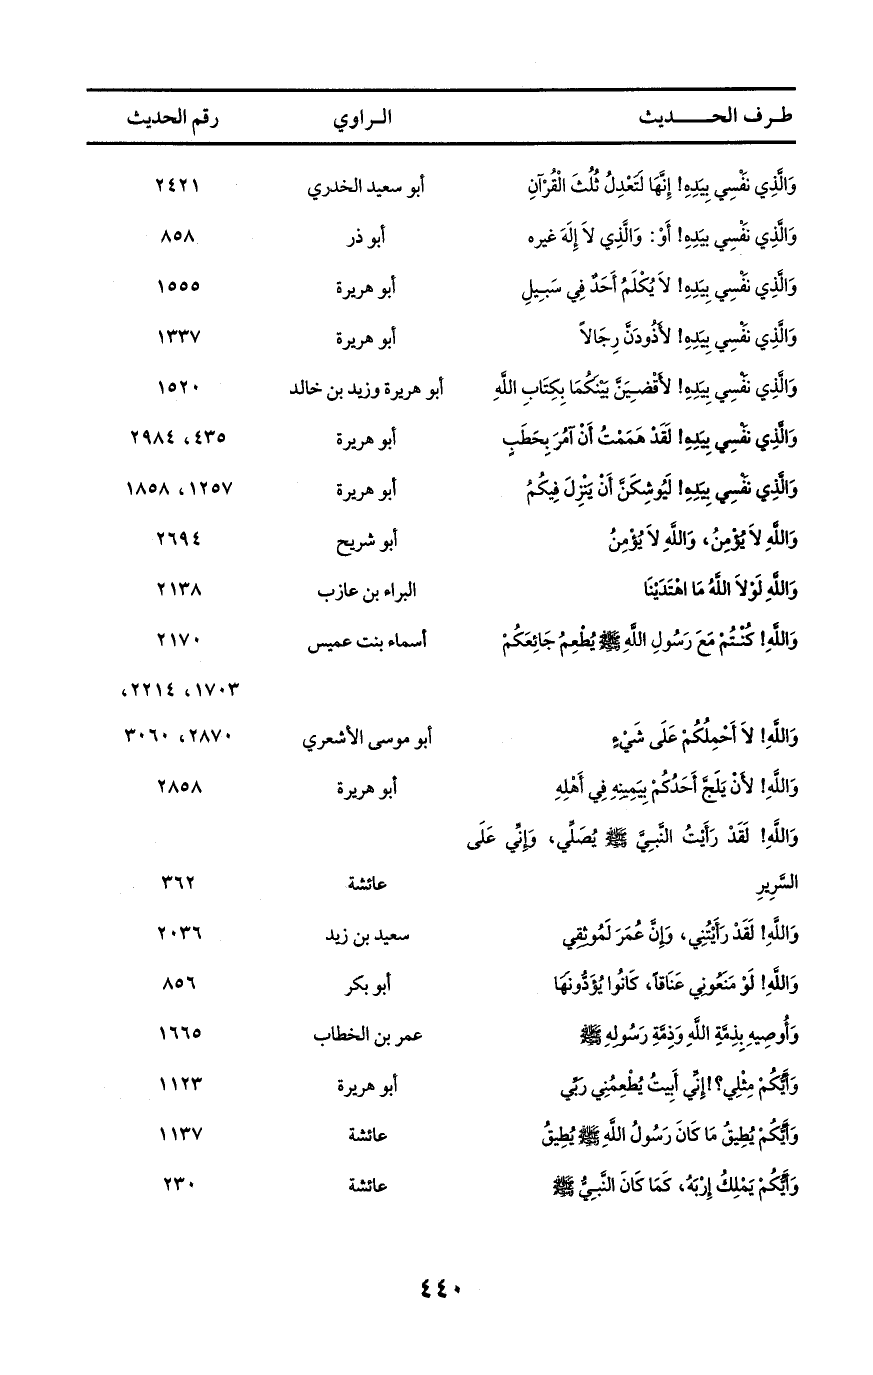 طـرف الحـــــديث الـراوي رقم الحديث
وَالَّذِي نَفْسِي بِيَدِهِ! إِنَّهَا لَتَعْدِلُ ثُلُثَ الْقُرْآنِ أبو سعيد الخدري ٢٤٢١
وَالَّذِي نَفْسِي بِيَدِهِ! أَوْ: وَالَّذِي لاَ إِلَهَ غيره أبو ذر ٨٥٨
وَالَّذِي نَفْسِي بِيَدِهِ! لاَ يُكْلَمُ أَحَدٌ فِي سَبِيلِ أبو هريرة ١٥٥٥
وَالَّذِي نَفْسِي بِيَدِهِ! لأَذُودَنَّ رِجَالاً أبو هريرة ١٣٣٧
وَالَّذِي نَفْسِي بِيَدِهِ! لأَقْضِيَنَّ بَيْنَكُمَا بِكِتَابِ اللَّهِ أبو هريرة وزيد بن خالد ١٥٢٠
وَالَّذِي نَفْسِي بِيَدِهِ! لَقَدْ هَمَمْتُ أَنْ آمُرَ بِحَطَبٍ أبو هريرة ٤٣٥، ٢٩٨٤
وَالَّذِي نَفْسِي بِيَدِهِ! لَيُوشِكَنَّ أَنْ يَنْزِلَ فِيكُمُ أبو هريرة ١٢٥٧، ١٨٥٨
وَاللَّهِ لاَ يُؤْمِنُ، وَاللَّهِ لاَ يُؤْمِنُ أبو شريح ٢٦٩٤
وَاللَّهِ لَوْلاَ اللَّهُ مَا اهْتَدَيْنَا البراء بن عازب ٢١٣٨
وَاللَّهِ! كُنْتُمْ مَعَ رَسُولِ اللَّهِ ﷺ يُطْعِمُ جَائِعَكُمْ أسماء بنت عميس ٢١٧٠
١٧٠٣، ٢٢١٤،
وَاللَّهِ! لاَ أَحْمِلُكُمْ عَلَى شَيْءٍ أبو موسى الأشعري ٢٨٧٠، ٣٠٦٠
وَاللَّهِ! لأَنْ يَلَجَّ أَحَدُكُمْ بِيَمِينِهِ فِي أَهْلِهِ أبو هريرة ٢٨٥٨
وَاللَّهِ! لَقَدْ رَأَيْتُ النَّبِيَّ ﷺ يُصَلِّي، وَإِنِّي عَلَى
السَّرِيرِ عائشة ٣٦٢
وَاللَّهِ! لَقَدْ رَأَيْتُنِي، وَإِنَّ عُمَرَ لَمُوثِقِي سعيد بن زيد ٢٠٣٦
وَاللَّهِ! لَوْ مَنَعُونِي عَنَاقاً، كَانُوا يُؤَدُّونَهَا أبو بكر ٨٥٦
وَأُوصِيهِ بِذِمَّةِ اللَّهِ وَذِمَّةِ رَسُولِهِ ﷺ عمر بن الخطاب ١٦٦٥
وَأَيُّكُمْ مِثْلِي؟! إِنِّي أَبِيتُ يُطْعِمُنِي رَبِّي أبو هريرة ١١٢٣
وَأَيُّكُمْ يُطِيقُ مَا كَانَ رَسُولُ اللَّهِ ﷺ يُطِيقُ عائشة ١١٣٧
وَأَيُّكُمْ يَمْلِكُ إِرْبَهُ، كَمَا كَانَ النَّبِيُّ ﷺ عائشة ٢٣٠
٤٤٠